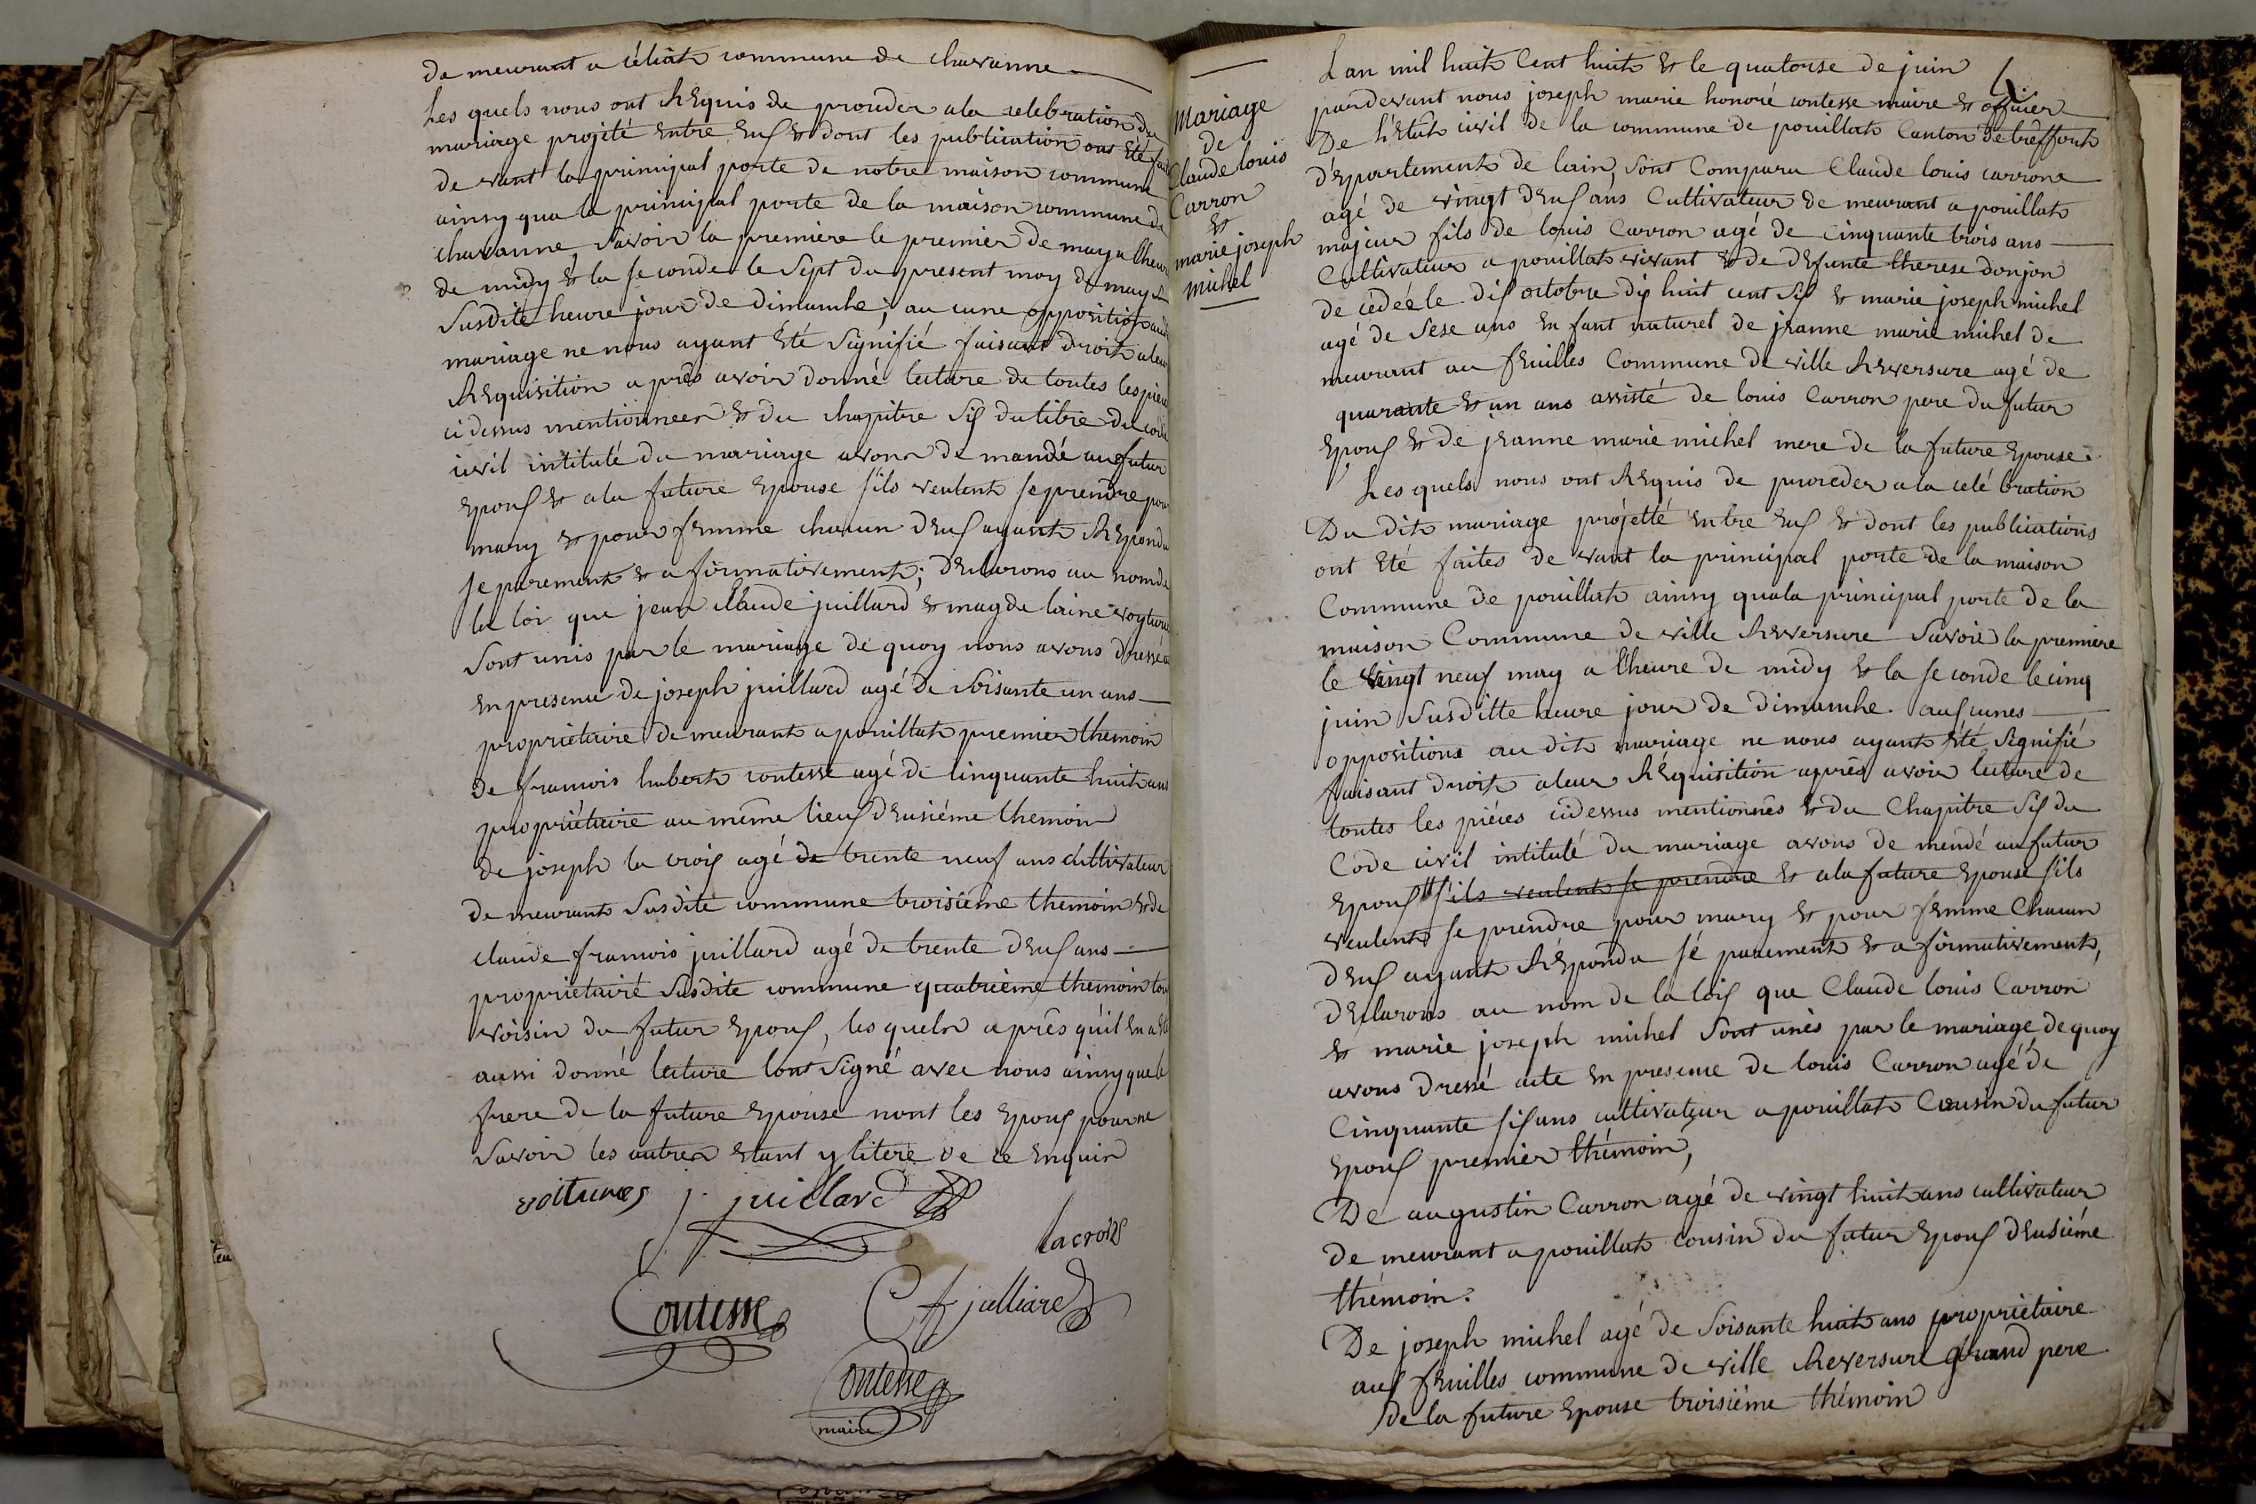 de meurant a céliat commune de chavanne
Les quels nous ont Requis de proceder a la celebration du
mariage projité entre Eux & dont les publication ont Eté fait
de vant la principal porte de notre maison commune
ainsy qua la principal porte de la maison commune de
chavanne, Savoir la premiere le premier de may a lheur
de midy & la Seconde le Sept du present moy de may
Susdite heure jour de dimanche; au cune opposition audit
mariage ne nous ayant Eté Signifié faisant droit a leur
REquisition après avoir donné lecture de toutes les pieces
ci dessus mentionnees & du chapitre Six du titre du code
civil intitulé du mariage avons de mandé au futur
Epoux & a la future Epouse s'ils veulent se prendre pour
mary & pour femme chacun d'Eux ayant REpondu
Separement & a firmativement; declarons au nom de
la loi que jean claude juillard & magdelaine voyturier
Sont unis par le mariage de quoy nous avons dressé
En presence de joseph juillard agé de Soisante un ans
propriétaire de meurant a pouillat premier themoin
de francois hubert contesse agé de Cinquante huit ans
propriétaire au même lieux d'Eusiéme themoin
de joseph la croix agé de trente neuf ans cultivateur
de meurant Susdite commune troisiéme themoin & de
claude francois juillard agé de trente d'Eux ans
propriétaire Susdite commune quatriéme themoin tous
voisin du futur Epoux, les quels après qu'il En a Eté
aussi donné lecture l'ont Signé avec nous ainsy que le
frere de la future Epouse nont les Epoux pour ne
Savoir les autres Etant ylitere de ce Enquis
j. juillard
lacroix
Contesse
C f julliard
Contesse
maire
Mariage
de
Claude louis
Carron
&
marie joseph
michel
Lan mil huit Cent huit & le quatorse de juin
pardevant nous joseph marie honoré contesse maire & officier
De l'Etat civil de la commune de pouillat Canton de treffort
département de lain, Sont Comparu Claude louis carron
agé de vingt d'Eux ans Cultivateur de meurant a pouillat
majeur fils de louis Carron agé de Cinquante trois ans
Cultivateur a pouillat vivant & de defunte therese donjon
de cédée le dix octobre dix huit cent Six & marie joseph michel
agé de Sese ans En fant naturel de jeanne marie michel de
meurant au feuilles Commune de ville Reversure agé de
quarante & un ans assisté de louis Carron pere du futur
Epoux & de jeanne marie michel mere de la future Epouse.
Les quels nous ont REquis de proceder a la celé bration
Du dit mariage projetté Entre Eux & dont les publications
ont Eté faites de vant la principal porte de la maison
Commune de pouillat ainsy quala principal porte de la
maison Commune de ville Reversure Savoir la premiere
le vingt neuf may a l'heure de midy & la Seconde le cinq
juin Susditte heure jour de dimanche. aux cunes
oppositions au dit mariage ne nous ayant Eté Signifié
faisant droit a leur REquisition après avoir lecture de
toutes les piéces cidessus mentionnés & du Chapitre Six du
Code civil intitulé du mariage avons de mendé au futur
Epoux s'ils veulent se prendre & a la future Epouse s'ils
veulent se prendre pour mary & pour femme Chacun
d'Eux ayant REpondu Sé parement & a firmativement,
declarons au nom de la loix que Claude louis Carron
& marie joseph michel Sont unis par le mariage de quoy
avons dressé acte En presence de louis Carron agé de
Cinquante Six ans cultivateur a pouillat Cousin du futur
Epoux premier thémoin,
De augustin Carron agé de vingt huit ans cultivateur
de meurant a pouillat cousin du futur Epoux d'Eusiéme
thémoin.
De joseph michel agé de Soisante huit ans propriétaire
aux feuilles commune de ville Reversure grand pere
de la future Epouse troisiéme thémoin